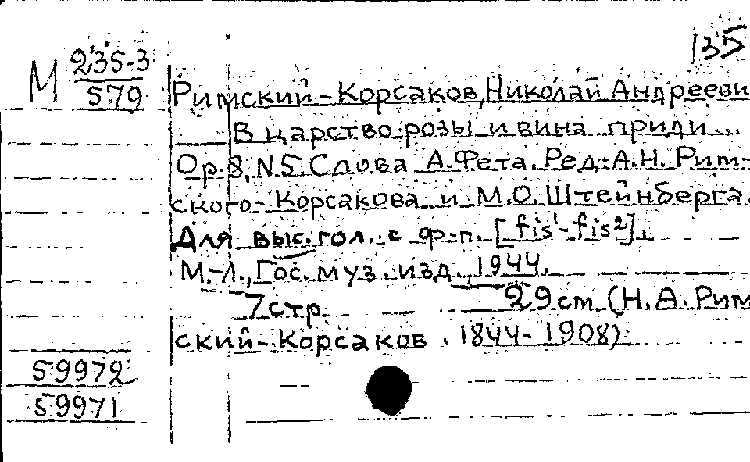 135
М 235-3
579
Римский-Корсаков, Николай Андрееви
В царство розы и вина приди...
Op. 8, N5. Слова А. Фета. Ред. А.Н. Рим-
ского-Корсакова и М.О. Штейнберга.
Для выс. гол. с ф-п. [fis¹-fis²].
М.-Л., Гос. муз. изд. 1944.
7 стр. 29 см (Н.А. Рим
ский-Корсаков. 1844-1908)
59972
59971